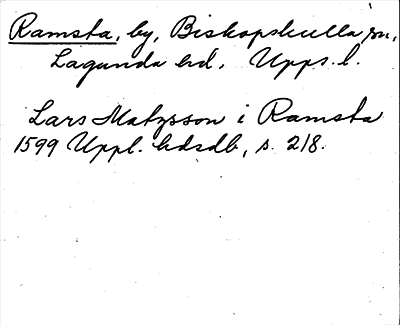 Ramsta, by, Biskopskulla sn,
Lagunda hd, Upps. l.
Lars Matzsson i Ramsta
1599 Uppl. hdsdb, s. 218.